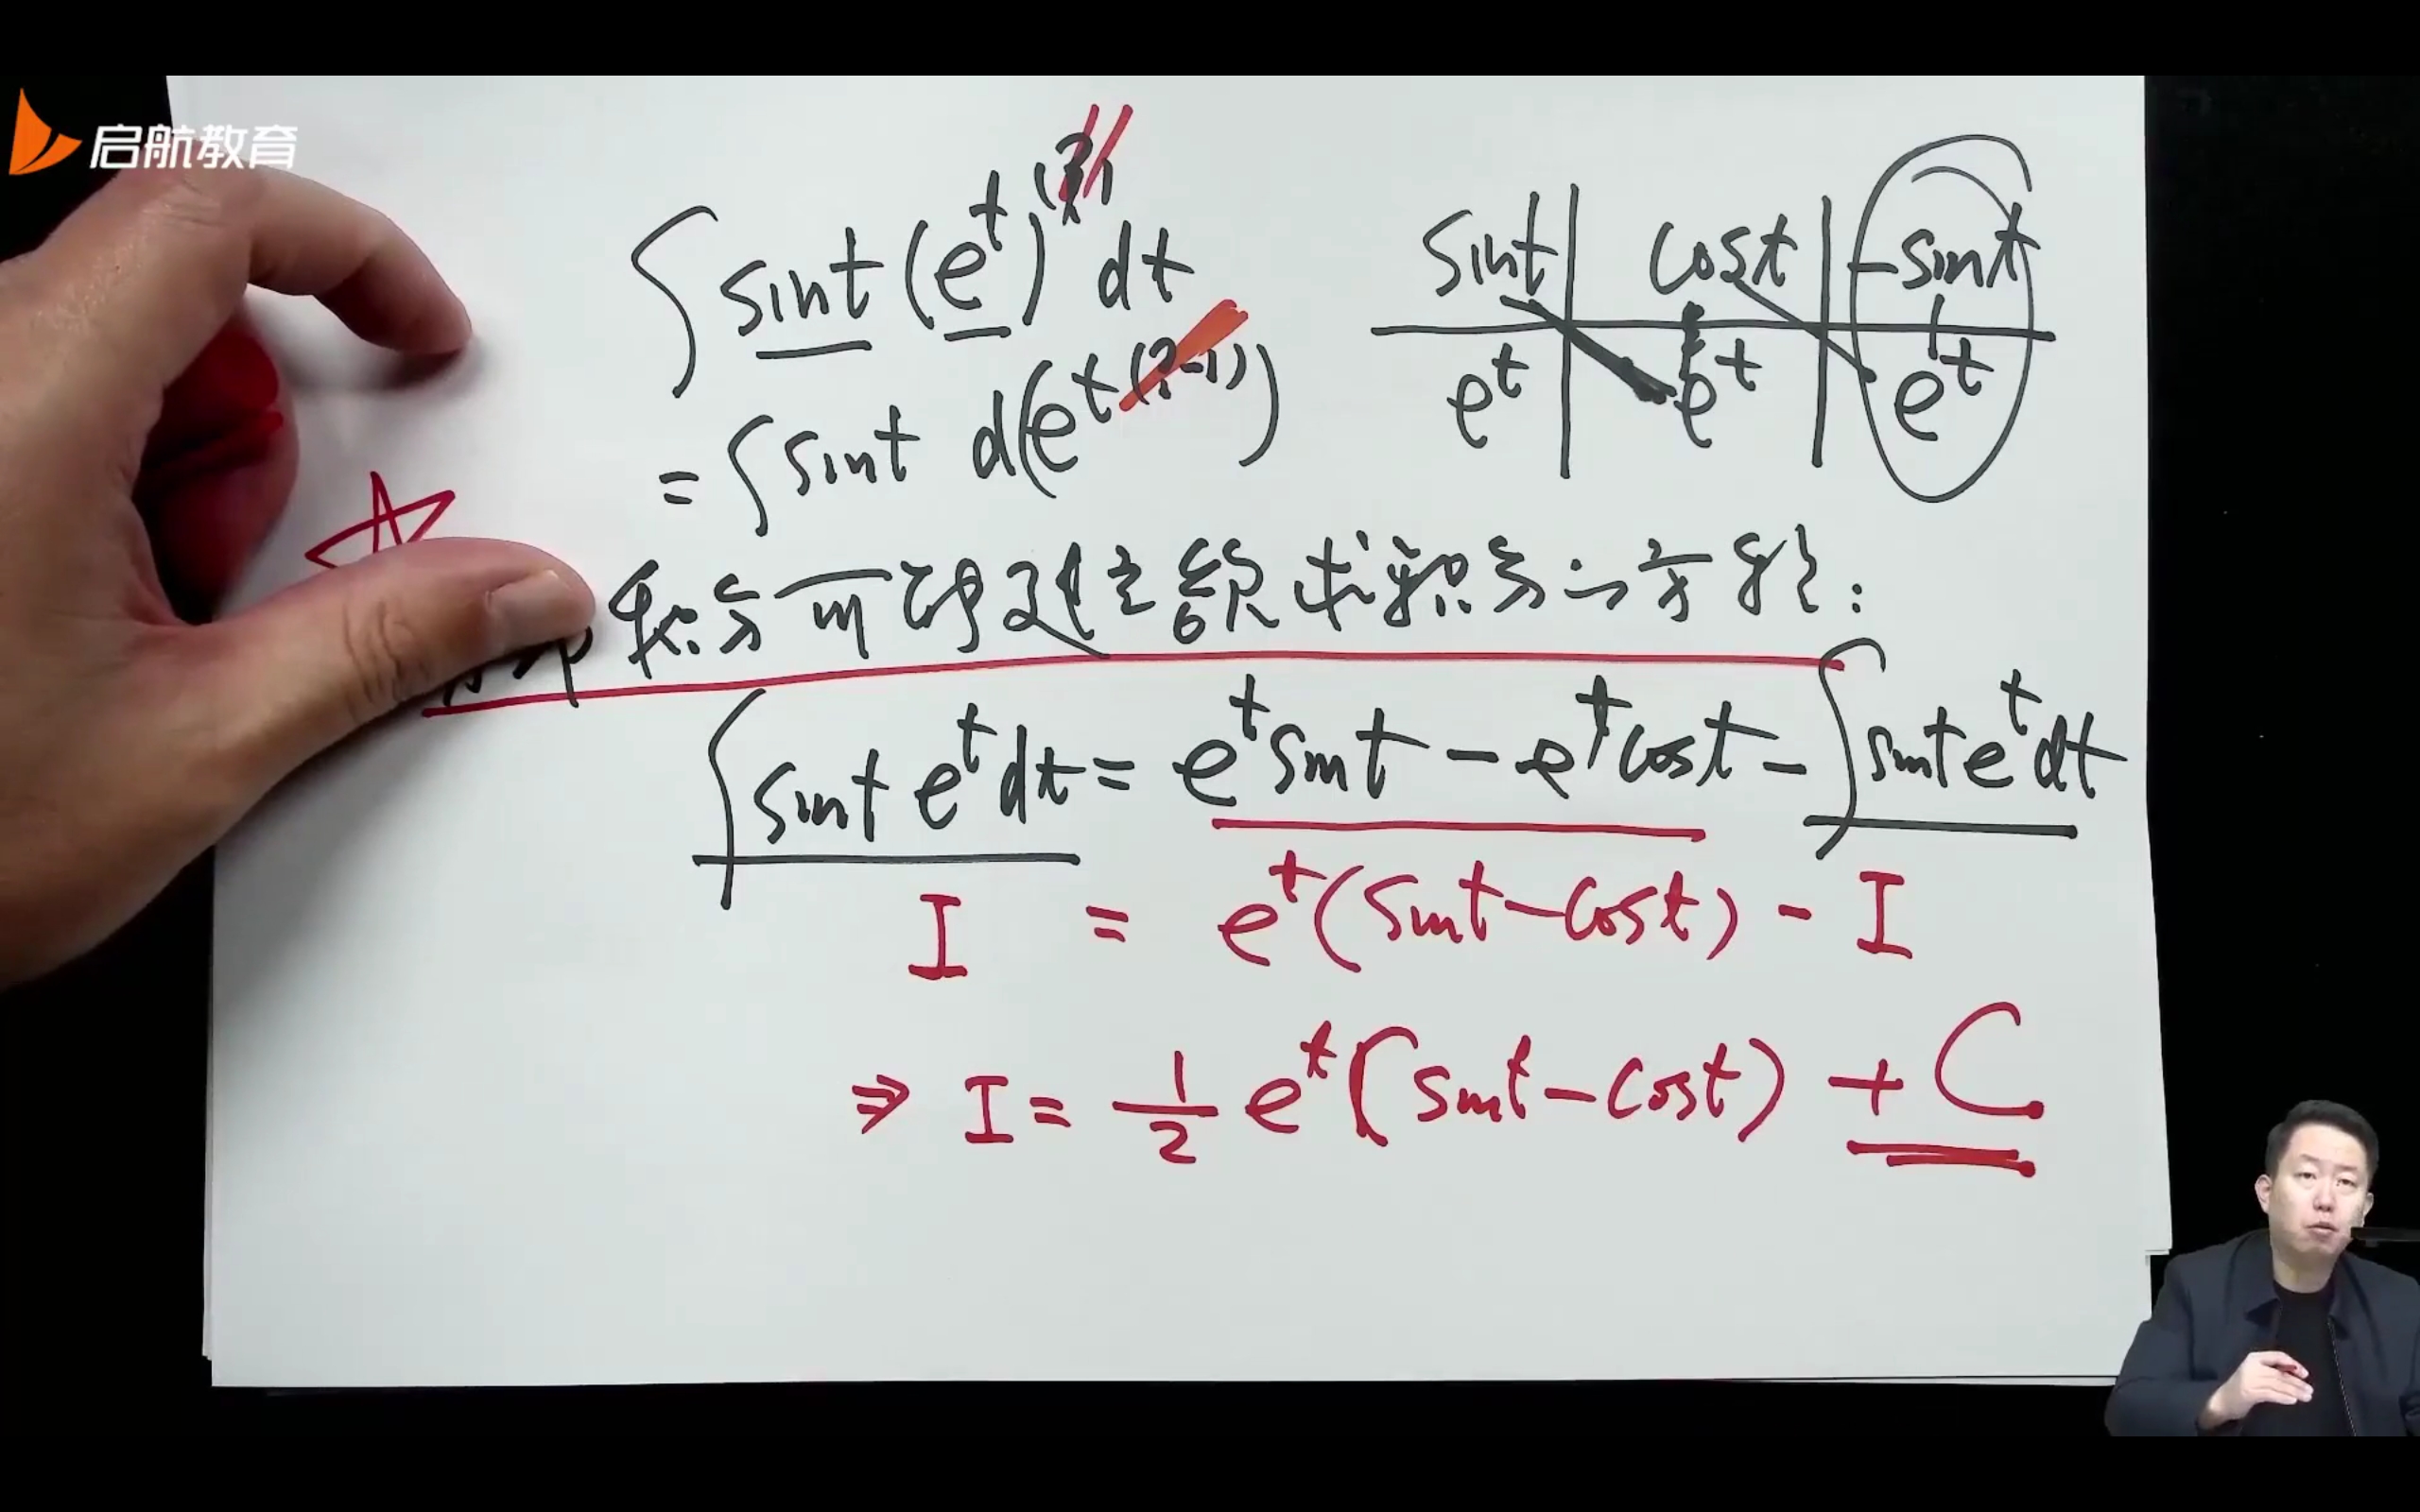 启航教育
∫ sint (e^t)^(?) dt
= ∫ sint d(e^t(?-1))
sint | cost | -sint
e^t | e^t | e^t
积分可建立欲求积分的方程:
∫ sint e^t dt = e^t sint - e^t cost - ∫ sint e^t dt
I = e^t (sint - cost) - I
⇒ I = 1/2 e^t (sint - cost) + C